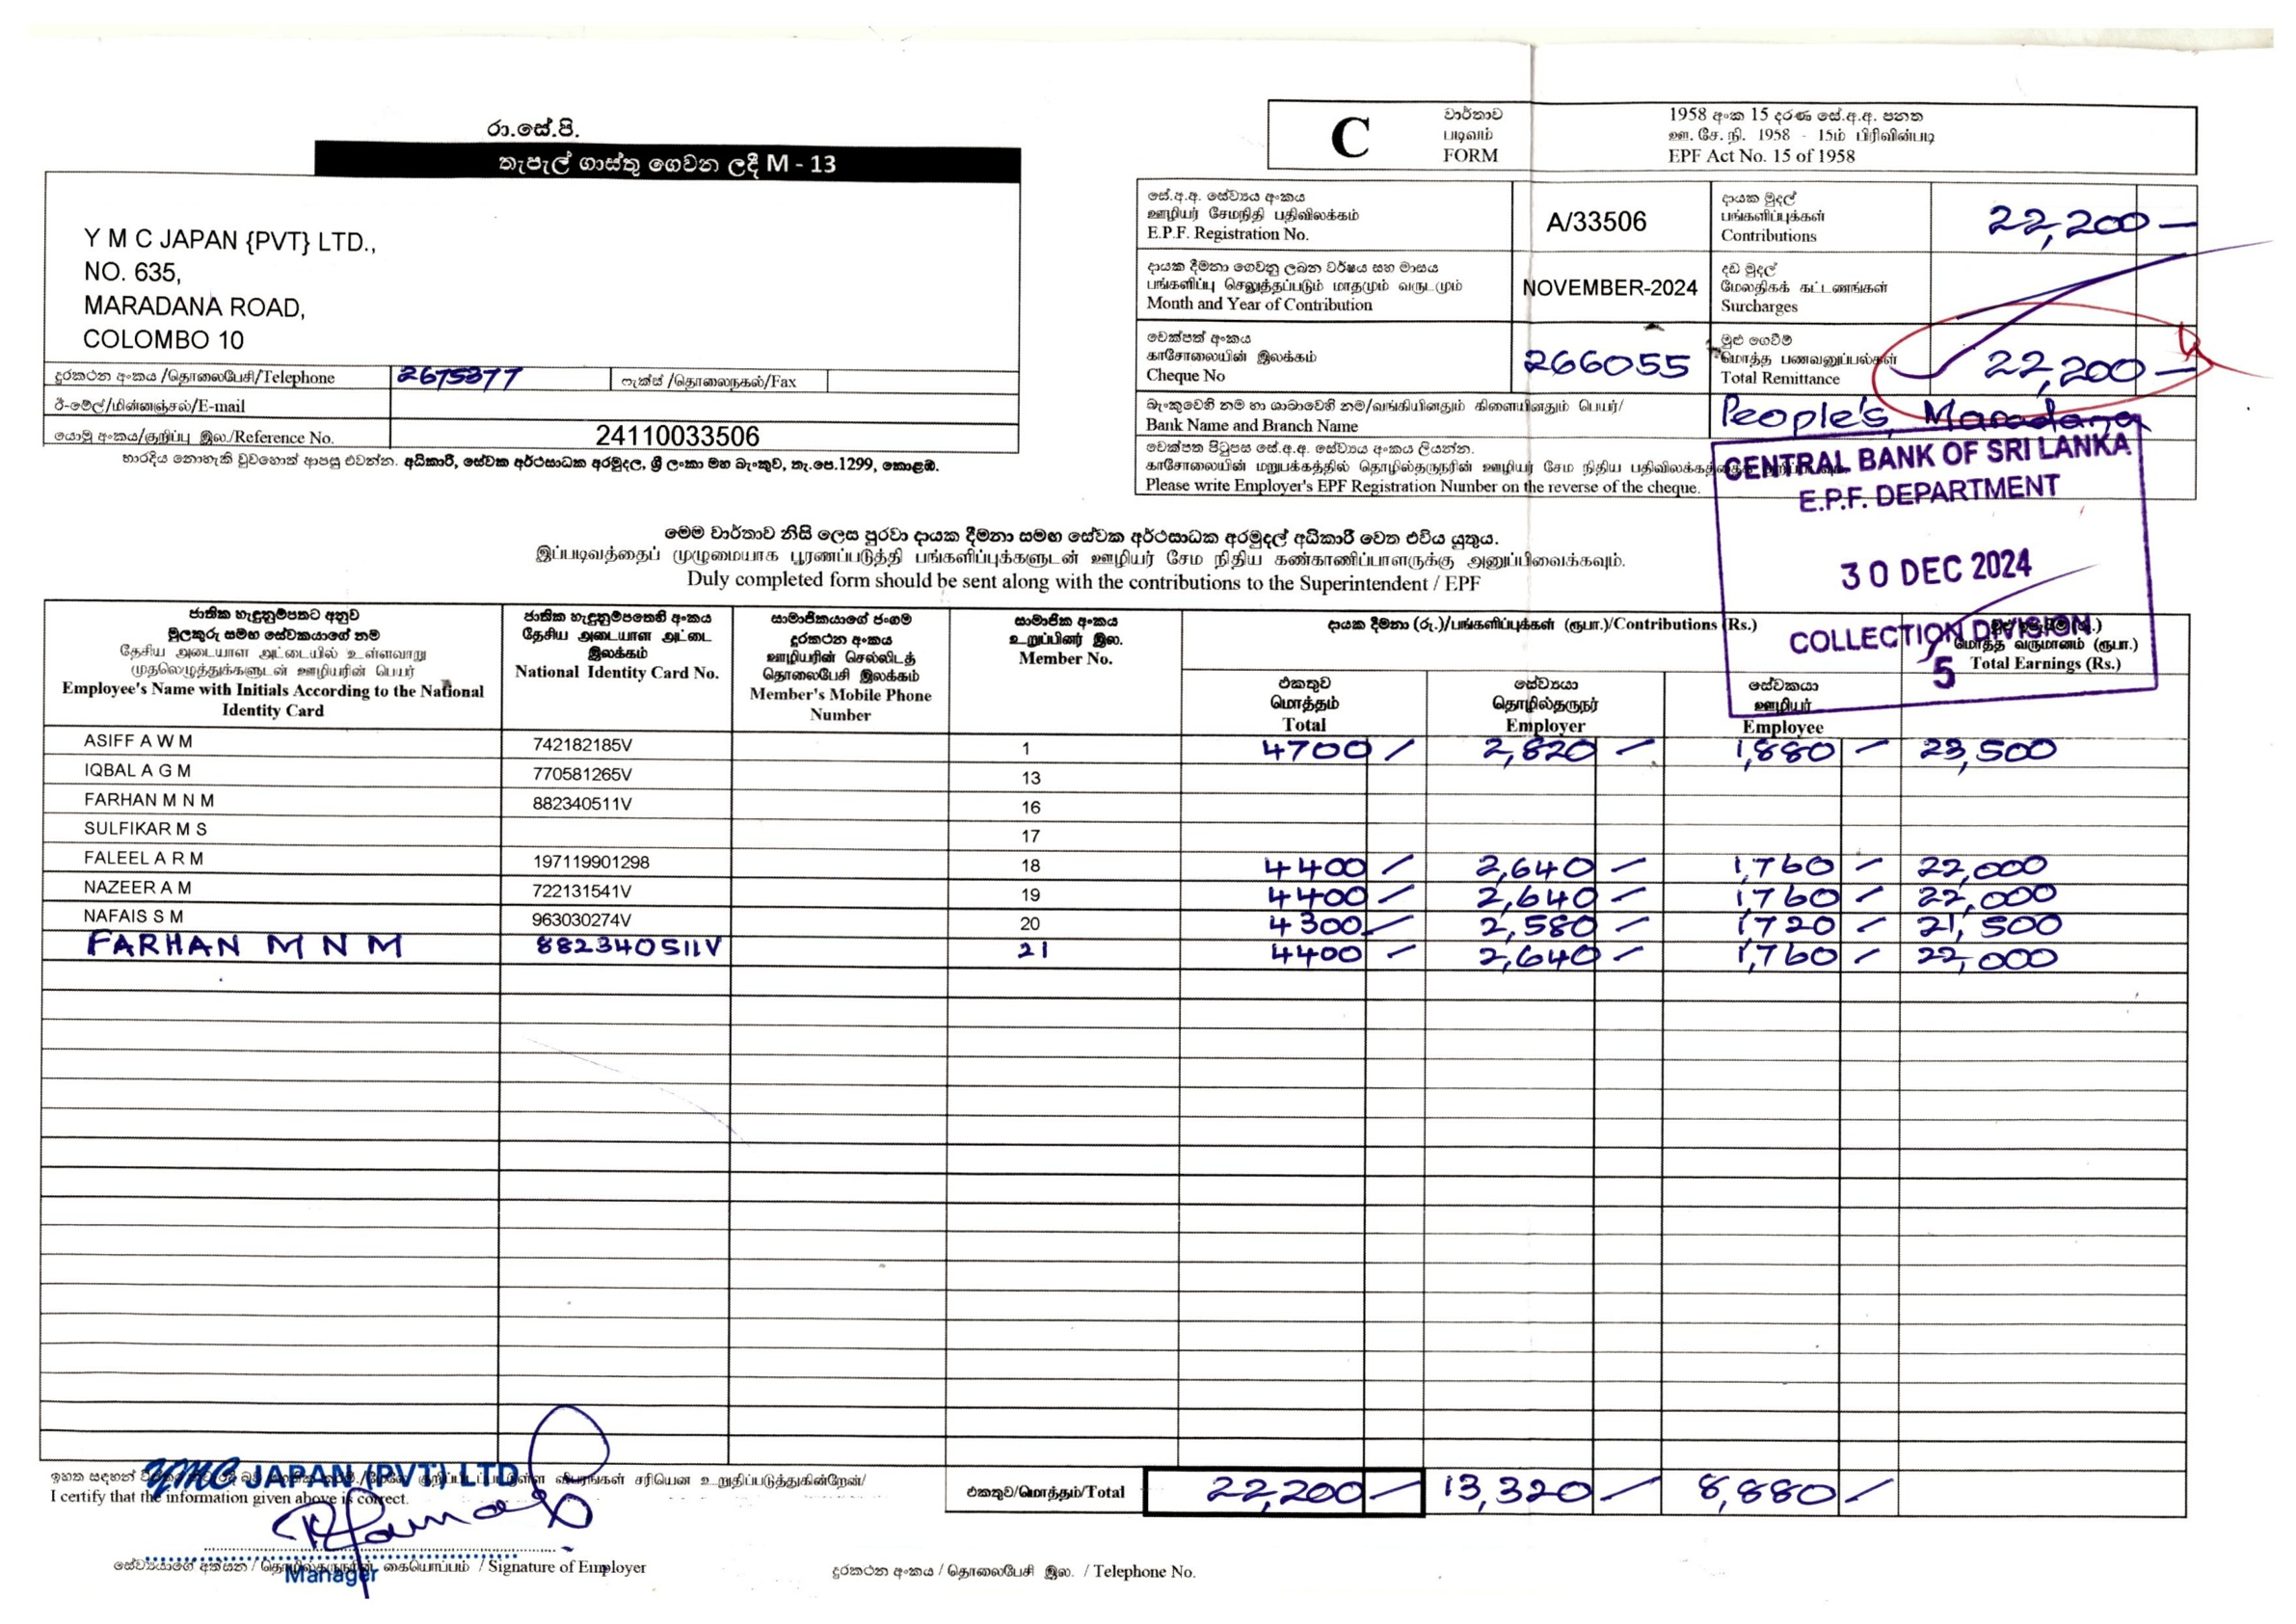 රා.සේ.පි.
තැපැල් ගාස්තු ගෙවන ලදී M - 13
Y M C JAPAN {PVT} LTD.,
NO. 635,
MARADANA ROAD,
COLOMBO 10
දුරකථන අංකය /தொலைபேசி/Telephone 2675377 ෆැක්ස් /தொலைநகல்/Fax
ඊ-මේල්/மின்னஞ்சல்/E-mail
යොමු අංකය/குறிப்பு இல./Reference No. 24110033506
භාරදිය නොහැකි වුවහොත් ආපසු එවන්න. අධිකාරී, සේවක අර්ථසාධක අරමුදල, ශ්‍රී ලංකා මහ බැංකුව, තැ.පෙ.1299, කොළඹ.
C
වාර්තාව
படிவம்
FORM
1958 අංක 15 දරණ සේ.අ.අ. පනත
ஊ. சே. நி. 1958 - 15ம் பிரிவின்படி
EPF Act No. 15 of 1958
සේ.අ.අ. සේව්‍යය අංකය
ஊழியர் சேமநிதி பதிவிலக்கம்
E.P.F. Registration No.
A/33506
දායක මුදල්
பங்களிப்புக்கள்
Contributions
22,200 —
දායක දීමනා ගෙවනු ලබන වර්ෂය සහ මාසය
பங்களிப்பு செலுத்தப்படும் மாதமும் வருடமும்
Month and Year of Contribution
NOVEMBER-2024
දඩ මුදල්
மேலதிகக் கட்டணங்கள்
Surcharges
චෙක්පත් අංකය
காசோலையின் இலக்கம்
Cheque No
266055
මුළු ගෙවීම්
மொத்த பணவனுப்பல்கள்
Total Remittance
22,200 —
බැංකුවෙහි නම හා ශාඛාවෙහි නම/வங்கியினதும் கிளையினதும் பெயர்/
Bank Name and Branch Name
People's, Maradana
චෙක්පත පිටුපස සේ.අ.අ. සේව්‍යය අංකය ලියන්න.
காசோலையின் மறுபக்கத்தில் தொழில்தருநரின் ஊழியர் சேம நிதிய பதிவிலக்கத்தை
Please write Employer's EPF Registration Number on the reverse of the cheque.
CENTRAL BANK OF SRI LANKA
E.P.F. DEPARTMENT
30 DEC 2024
COLLECTION DIVISION
5
මෙම වාර්තාව නිසි ලෙස පුරවා දායක දීමනා සමඟ සේවක අර්ථසාධක අරමුදල් අධිකාරී වෙත එවිය යුතුය.
இப்படிவத்தைப் முழுமையாக பூரணப்படுத்தி பங்களிப்புக்களுடன் ஊழியர் சேம நிதிய கண்காணிப்பாளருக்கு அனுப்பிவைக்கவும்.
Duly completed form should be sent along with the contributions to the Superintendent / EPF
ජාතික හැඳුනුම්පතට අනුව
මුලකුරු සමඟ සේවකයාගේ නම
தேசிய அடையாள அட்டையில் உள்ளவாறு
முதலெழுத்துக்களுடன் ஊழியரின் பெயர்
Employee's Name with Initials According to the National
Identity Card
ජාතික හැඳුනුම්පතෙහි අංකය
தேசிய அடையாள அட்டை
இலக்கம்
National Identity Card No.
සාමාජිකයාගේ ජංගම
දුරකථන අංකය
ஊழியரின் செல்லிடத்
தொலைபேசி இலக்கம்
Member's Mobile Phone
Number
සාමාජික අංකය
உறுப்பினர் இல.
Member No.
දායක දීමනා (රු.)/பங்களிப்புக்கள் (ரூபா.)/Contributions (Rs.)
எකතුව
மொத்தம்
Total
සේව්‍යයා
தொழில்தருநர்
Employer
සේවකයා
ஊழியர்
Employee
மொத்த வருமானம் (ரூபா.)
Total Earnings (Rs.)
ASIFF A W M 742182185V 1 4700 / 2,820 — 1,880 — 23,500
IQBAL A G M 770581265V 13
FARHAN M N M 882340511V 16
SULFIKAR M S 17
FALEEL A R M 197119901298 18 4400 — 2,640 — 1,760 — 22,000
NAZEER A M 722131541V 19 4400 — 2,640 — 1,760 — 22,000
NAFAIS S M 963030274V 20 4300 — 2,580 — 1720 — 21,500
FARHAN M N M 882340511V 21 4400 — 2,640 — 1,760 — 22,000
එකතුව/மொத்தம்/Total 22,200 — 13,320 — 8,880 —
YMC JAPAN (PVT) LTD
ඉහත සඳහන් விபரங்கள் சரியென உறுதிப்படுத்துகின்றேன்/
I certify that the information given above is correct.
සේව්‍යයාගේ අත්සන / தொழில்தருநரின் கையொப்பம் / Signature of Employer
Manager
දුරකථන අංකය / தொலைபேசி இல. / Telephone No.